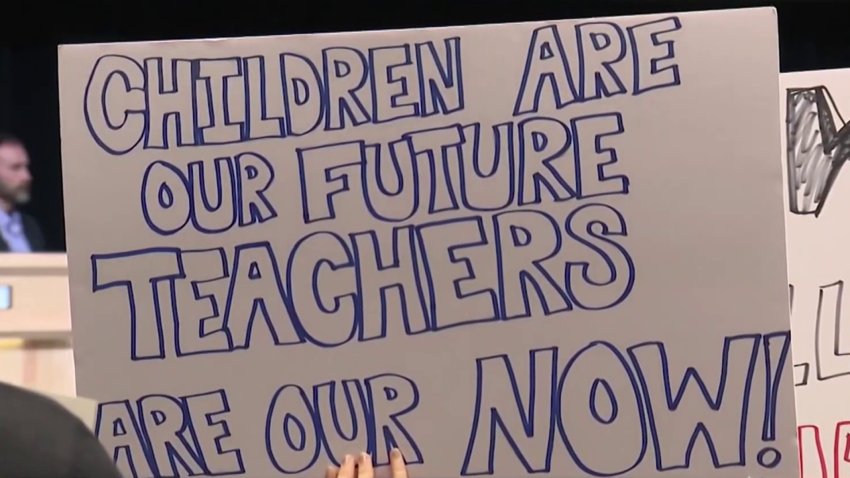 CHILDREN ARE
OUR FUTURE
TEACHERS
ARE OUR NOW!